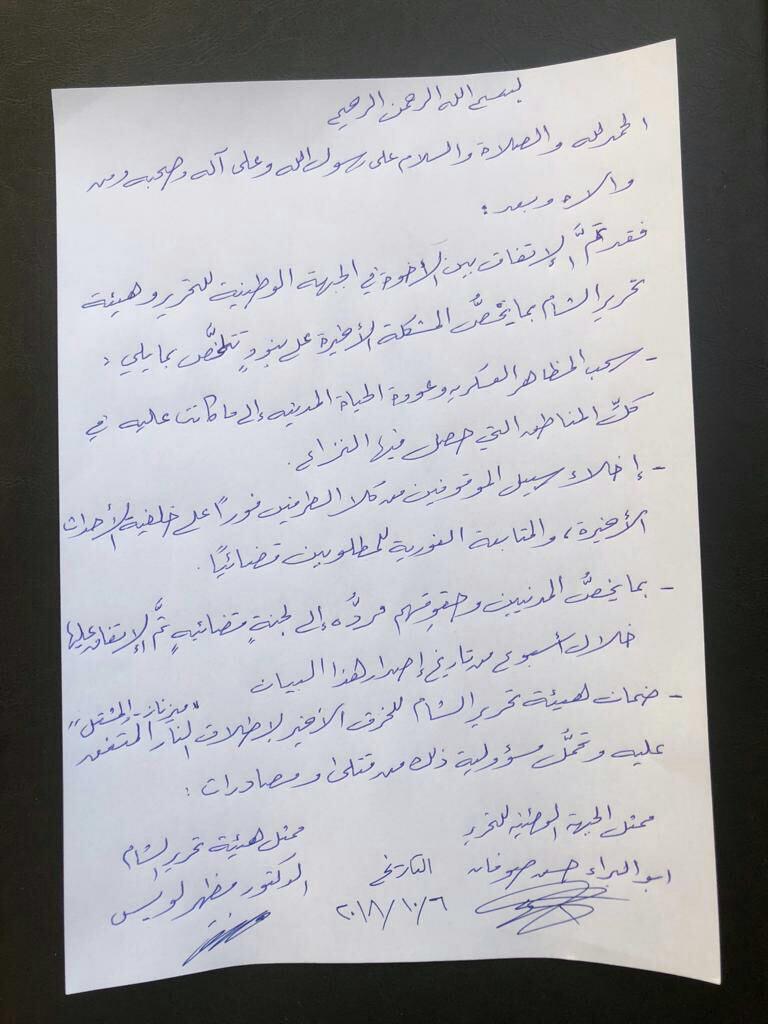 بسم الله الرحمن الرحيم
الحمد لله والصلاة والسلام على رسول الله وعلى آله وصحبه ومن
والاه وبعد :
فقد تمَّ الإتفاق بين الأخوة في الجبهة الوطنية للتحرير وهيئة
تحرير الشام بما يخصُّ المشكلة الأخيرة على بنودٍ تتلخَّص بما يلي :
- سحب المظاهر العسكرية وعودة الحياة المدنية إلى ما كانت عليه في
كلِّ المناطق التي حصل فيها النزاع .
- إخلاء سبيل الموقوفين من كلا الطرفين فوراً على خلفية الأحداث
الأخيرة، والمتابعة الفورية للمطلوبين قضائيًا .
- بما يخصُّ المدنيين وحقوقهم مردُّه إلى لجنةٍ قضائيةٍ تمَّ الإتفاق عليها
خلال أسبوع من تاريخ إصدار هذا البيان
"ميزناز - المشتل"
- ضمان هيئة تحرير الشام للخرق الأخير لإطلاق النار المتفق
عليه وتحمُّل مسؤولية ذلك من قتلى ومصادرات :
ممثل الجبهة الوطنية للتحرير
ممثل هيئة تحرير الشام
ابو البراء حسن صوفان
التاريخ
الدكتور مظهر لويس
٢٠١٨/١٠/٦